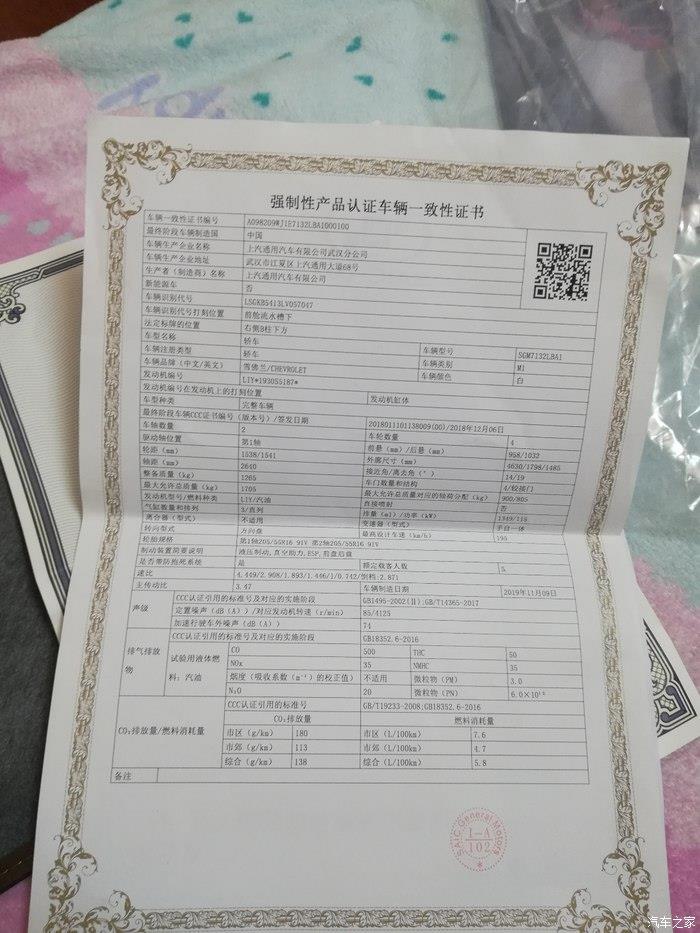 强制性产品认证车辆一致性证书
车辆一致性证书编号 A098209WJ1E7132LBA1000100
最终阶段车辆制造国 中国
车辆生产企业名称 上汽通用汽车有限公司武汉分公司
车辆生产企业地址 武汉市江夏区上汽通用大道68号
生产者(制造商)名称 上汽通用汽车有限公司
新能源车 否
车辆识别代号 LSGKB5413LV057047
车辆识别代号打刻位置 前舱流水槽下
法定标牌的位置 右侧B柱下方
车型名称 轿车 车辆型号 SGM7132LBA1
车辆注册类型 轿车 车辆类别 M1
车辆品牌(中文/英文) 雪佛兰/CHEVROLET 车辆颜色 白
发动机编号 LIY*193055187*
发动机编号在发动机上的打刻位置 发动机缸体
车型种类 完整车辆
最终阶段车辆CCC证书编号(版本号)/签发日期 2018011101138009(00)/2018年12月06日
车轴数量 2 车轮数量 4
驱动轴位置 第1轴 前悬(mm)/后悬(mm) 958/1032
轮距(mm) 1538/1541 外廓尺寸(mm) 4630/1798/1485
轴距(mm) 2640 接近角/离去角(°) 14/19
整备质量(kg) 1265 车门数量和结构 4/铰接门
最大允许总质量(kg) 1705 最大允许总质量对应的轴荷分配(kg) 900/805
发动机型号/燃料种类 LIY/汽油 直接喷射 否
气缸数量和排列 3/直列 排量(ml)/功率(kW) 1349/115
离合器(型式) 不适用 变速器(型式) 手自一体
转向型式 方向盘 最高设计车速(km/h) 195
轮胎规格 第1轴205/55R16 91V 第2轴205/55R16 91V
制动装置简要说明 液压制动,真空助力,ESP,前盘后鼓
是否带防抱死系统 是 额定载客人数 5
速比 4.449/2.908/1.893/1.446/1/0.742/倒档:2.871
主传动比 3.47 车辆制造日期 2019年11月09日
声级 CCC认证引用的标准号及对应的实施阶段 GB1495-2002(Ⅱ);GB/T14365-2017
定置噪声(dB(A))/对应发动机转速(r/min) 85/4125
加速行驶车外噪声(dB(A)) 74
排气排放物 CCC认证引用的标准号及对应的实施阶段 GB18352.6-2016
试验用液体燃料:汽油 CO 500 THC 50
NOx 35 NMHC 35
烟度(吸收系数(m⁻¹)的校正值) 不适用 微粒物(PM) 3.0
N₂O 20 微粒物(PN)
CO₂排放量/燃料消耗量 CCC认证引用的标准号 GB/T19233-2008;GB18352.6-2016
CO₂排放量 燃料消耗量
市区(g/km) 180 市区(L/100km) 7.6
市郊(g/km) 113 市郊(L/100km) 4.7
综合(g/km) 138 综合(L/100km) 5.8
备注
SAIC General Motors
I-A
102
汽车之家